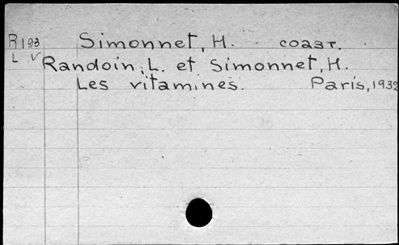 R193 Simonnet, H. соавт.
L V Randoin, L. et Simonnet, H.
Les vitamines. Paris, 1932